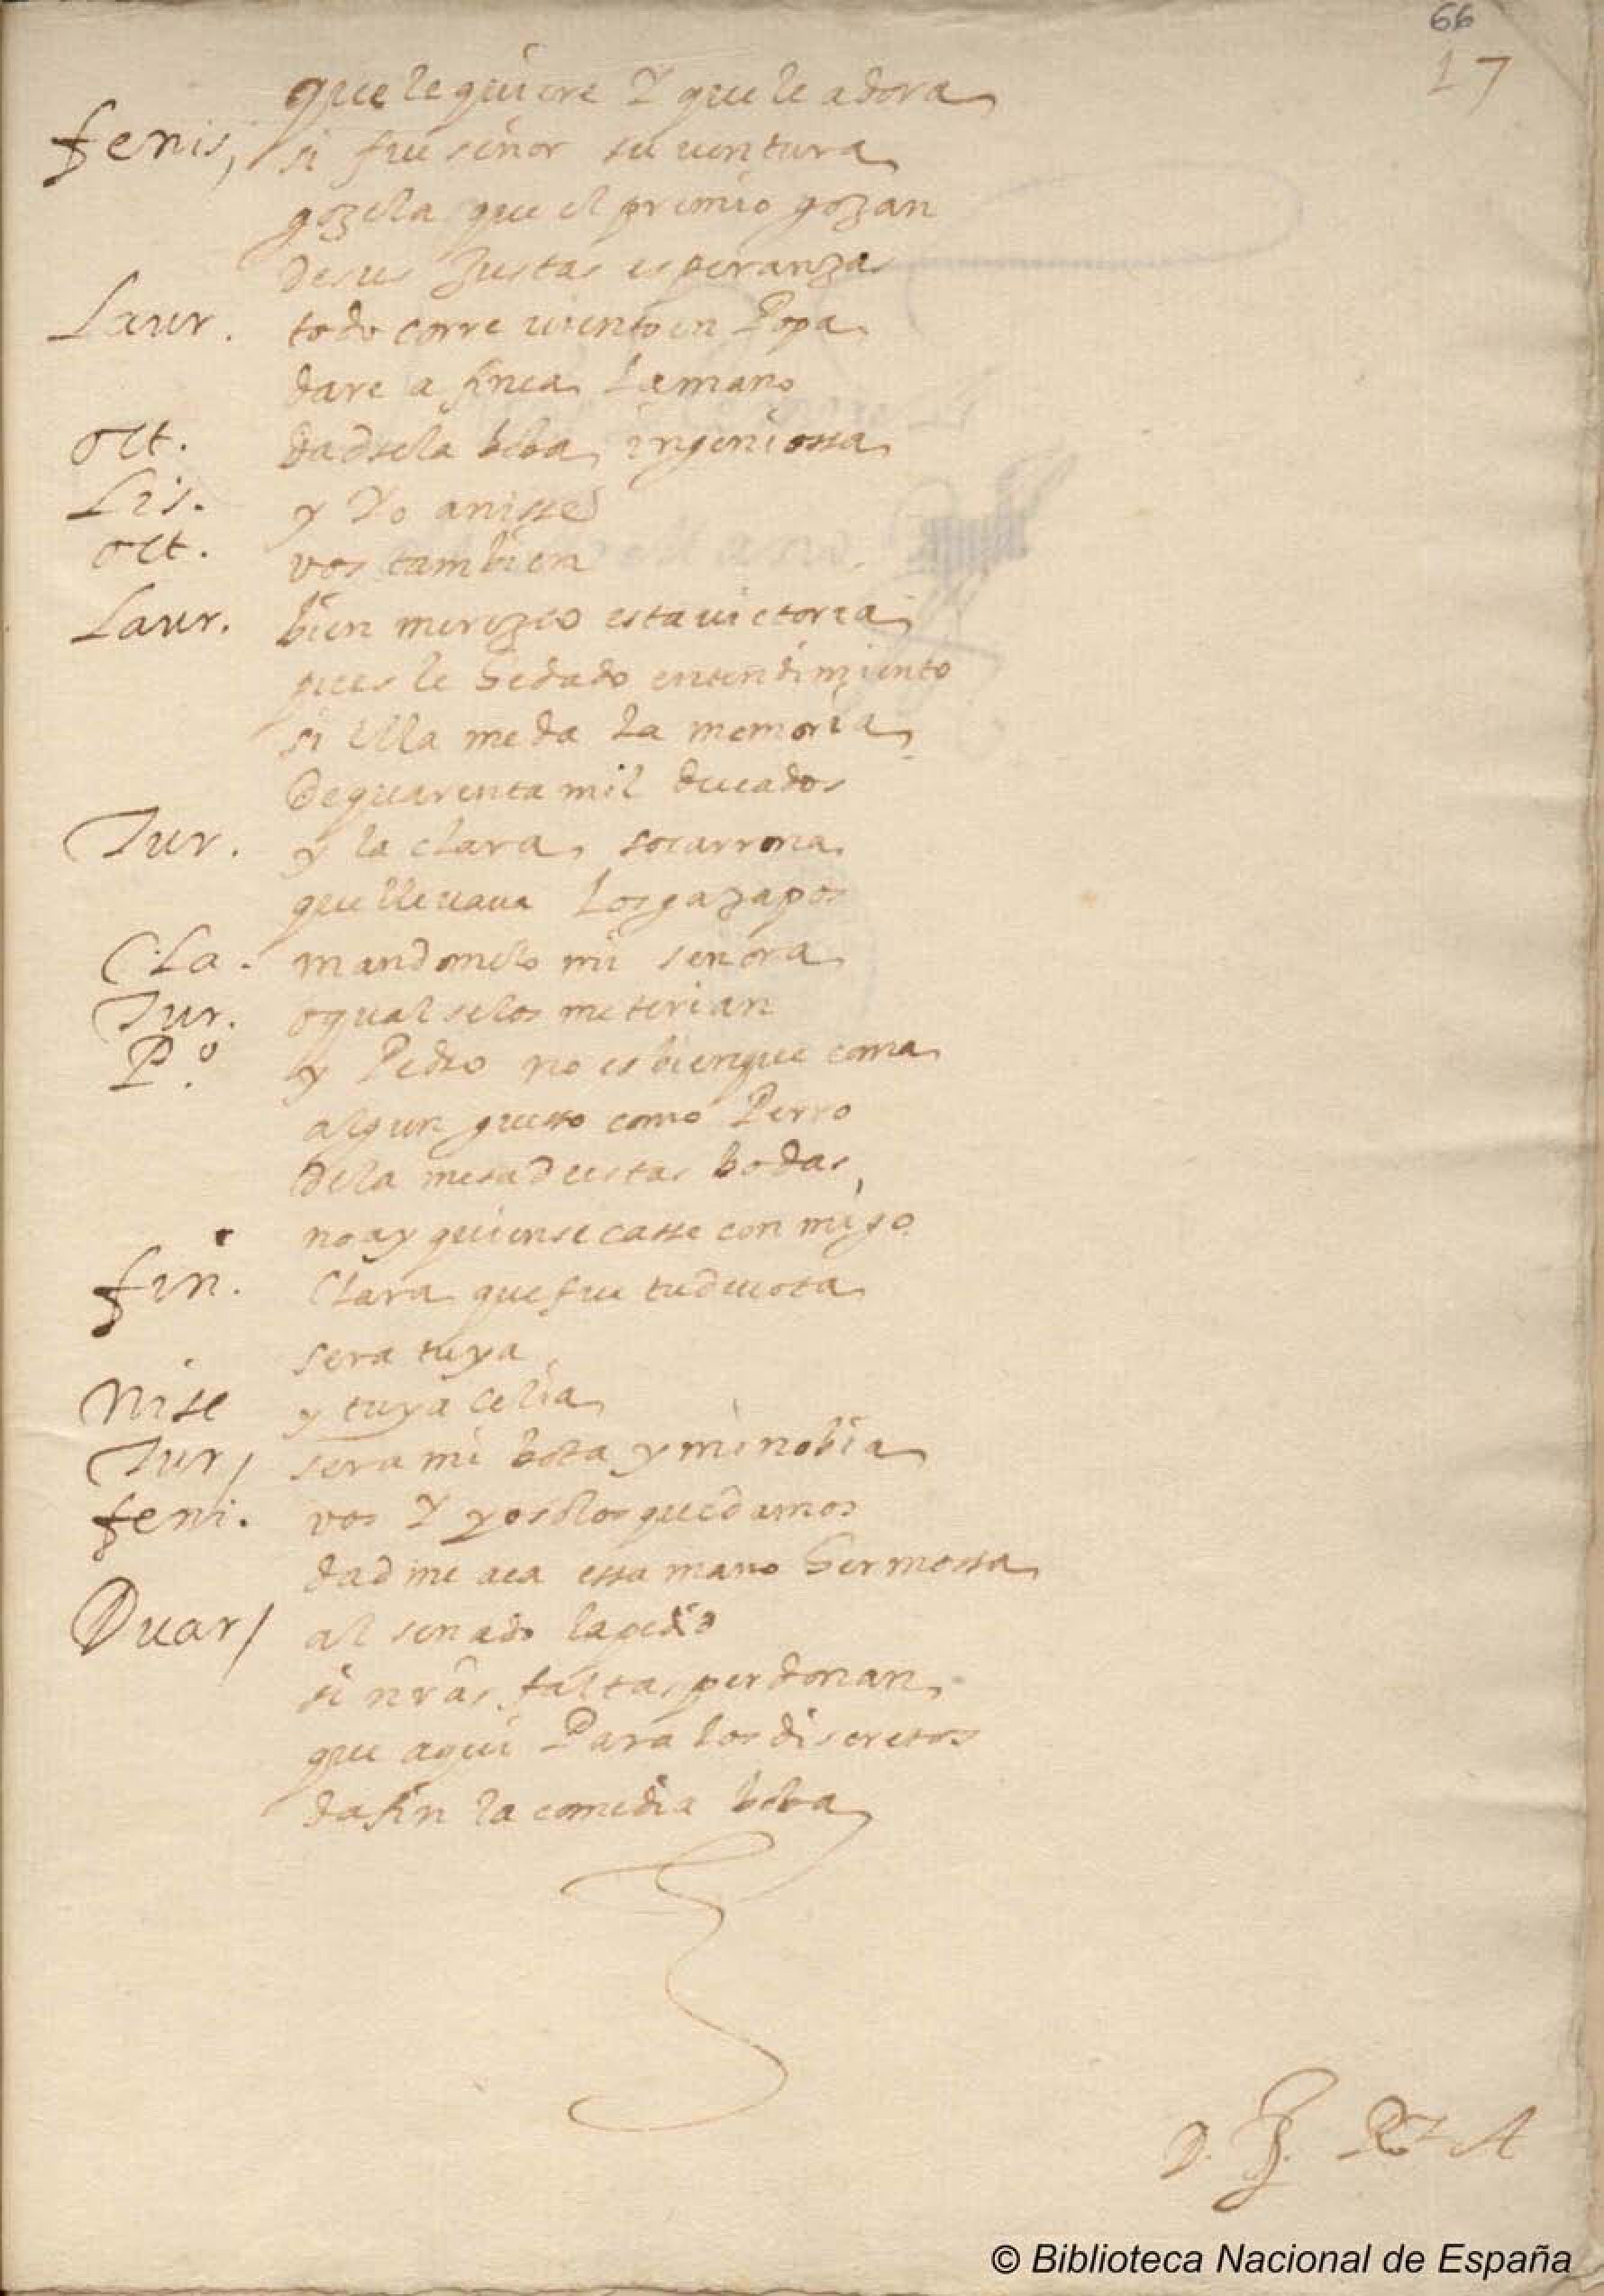 66
17
que le quiere Y que le adora
fenis, si fue señor su uentura
gozela que el premio gozan
de sus Justas esperanzas
Laur. todo corre uiento en Popa
dare a finea La mano
Oct. dadsela boba ingeniossa
Lis. y Yo a nisse
Oct. vos tambien
Laur. bien merezco esta uictoria
pues le he dado entendimiento
si ella me da La memoria
de quarenta mil ducados
Tur. y la clara, socarrona
que lleuaua Los gazapos
Cla. mandomelo mi señora
Tur. o qual se los meterian
P.º y Pedro no es bien que coma
algun guesso como Perro
de la mesa de estas bodas,
no ay quien se casse con migo
fin. Clara que fue tu deuota
sera tuya
Nise y tuya Celia
Tur, sera mi bota y mi nobia
feni. vos Y yo solos quedamos
dad me aca essa mano hermossa
Duar/ al senado la pedid
si nrãs faltas perdonan
que aqui Para los discretos
da fin la comedia boba
© Biblioteca Nacional de España